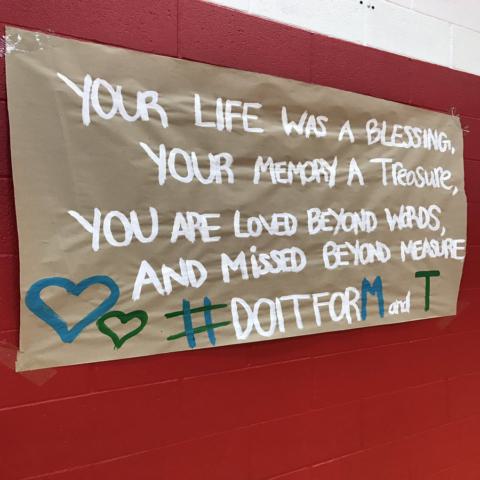 YOUR LIFE WAS A BLESSING,
YOUR MEMORY A TREASURE,
YOU ARE LOVED BEYOND WORDS,
AND MISSED BEYOND MEASURE
#DOITFORM and T